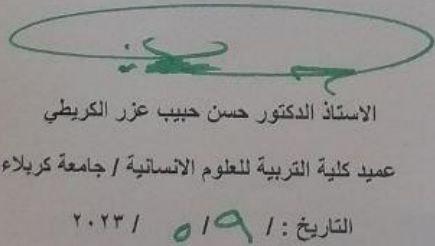 الاستاذ الدكتور حسن حبيب عزر الكريطي
عميد كلية التربية للعلوم الانسانية / جامعة كربلاء
التاريخ : / ٩ / ٥ / ٢٠٢٣